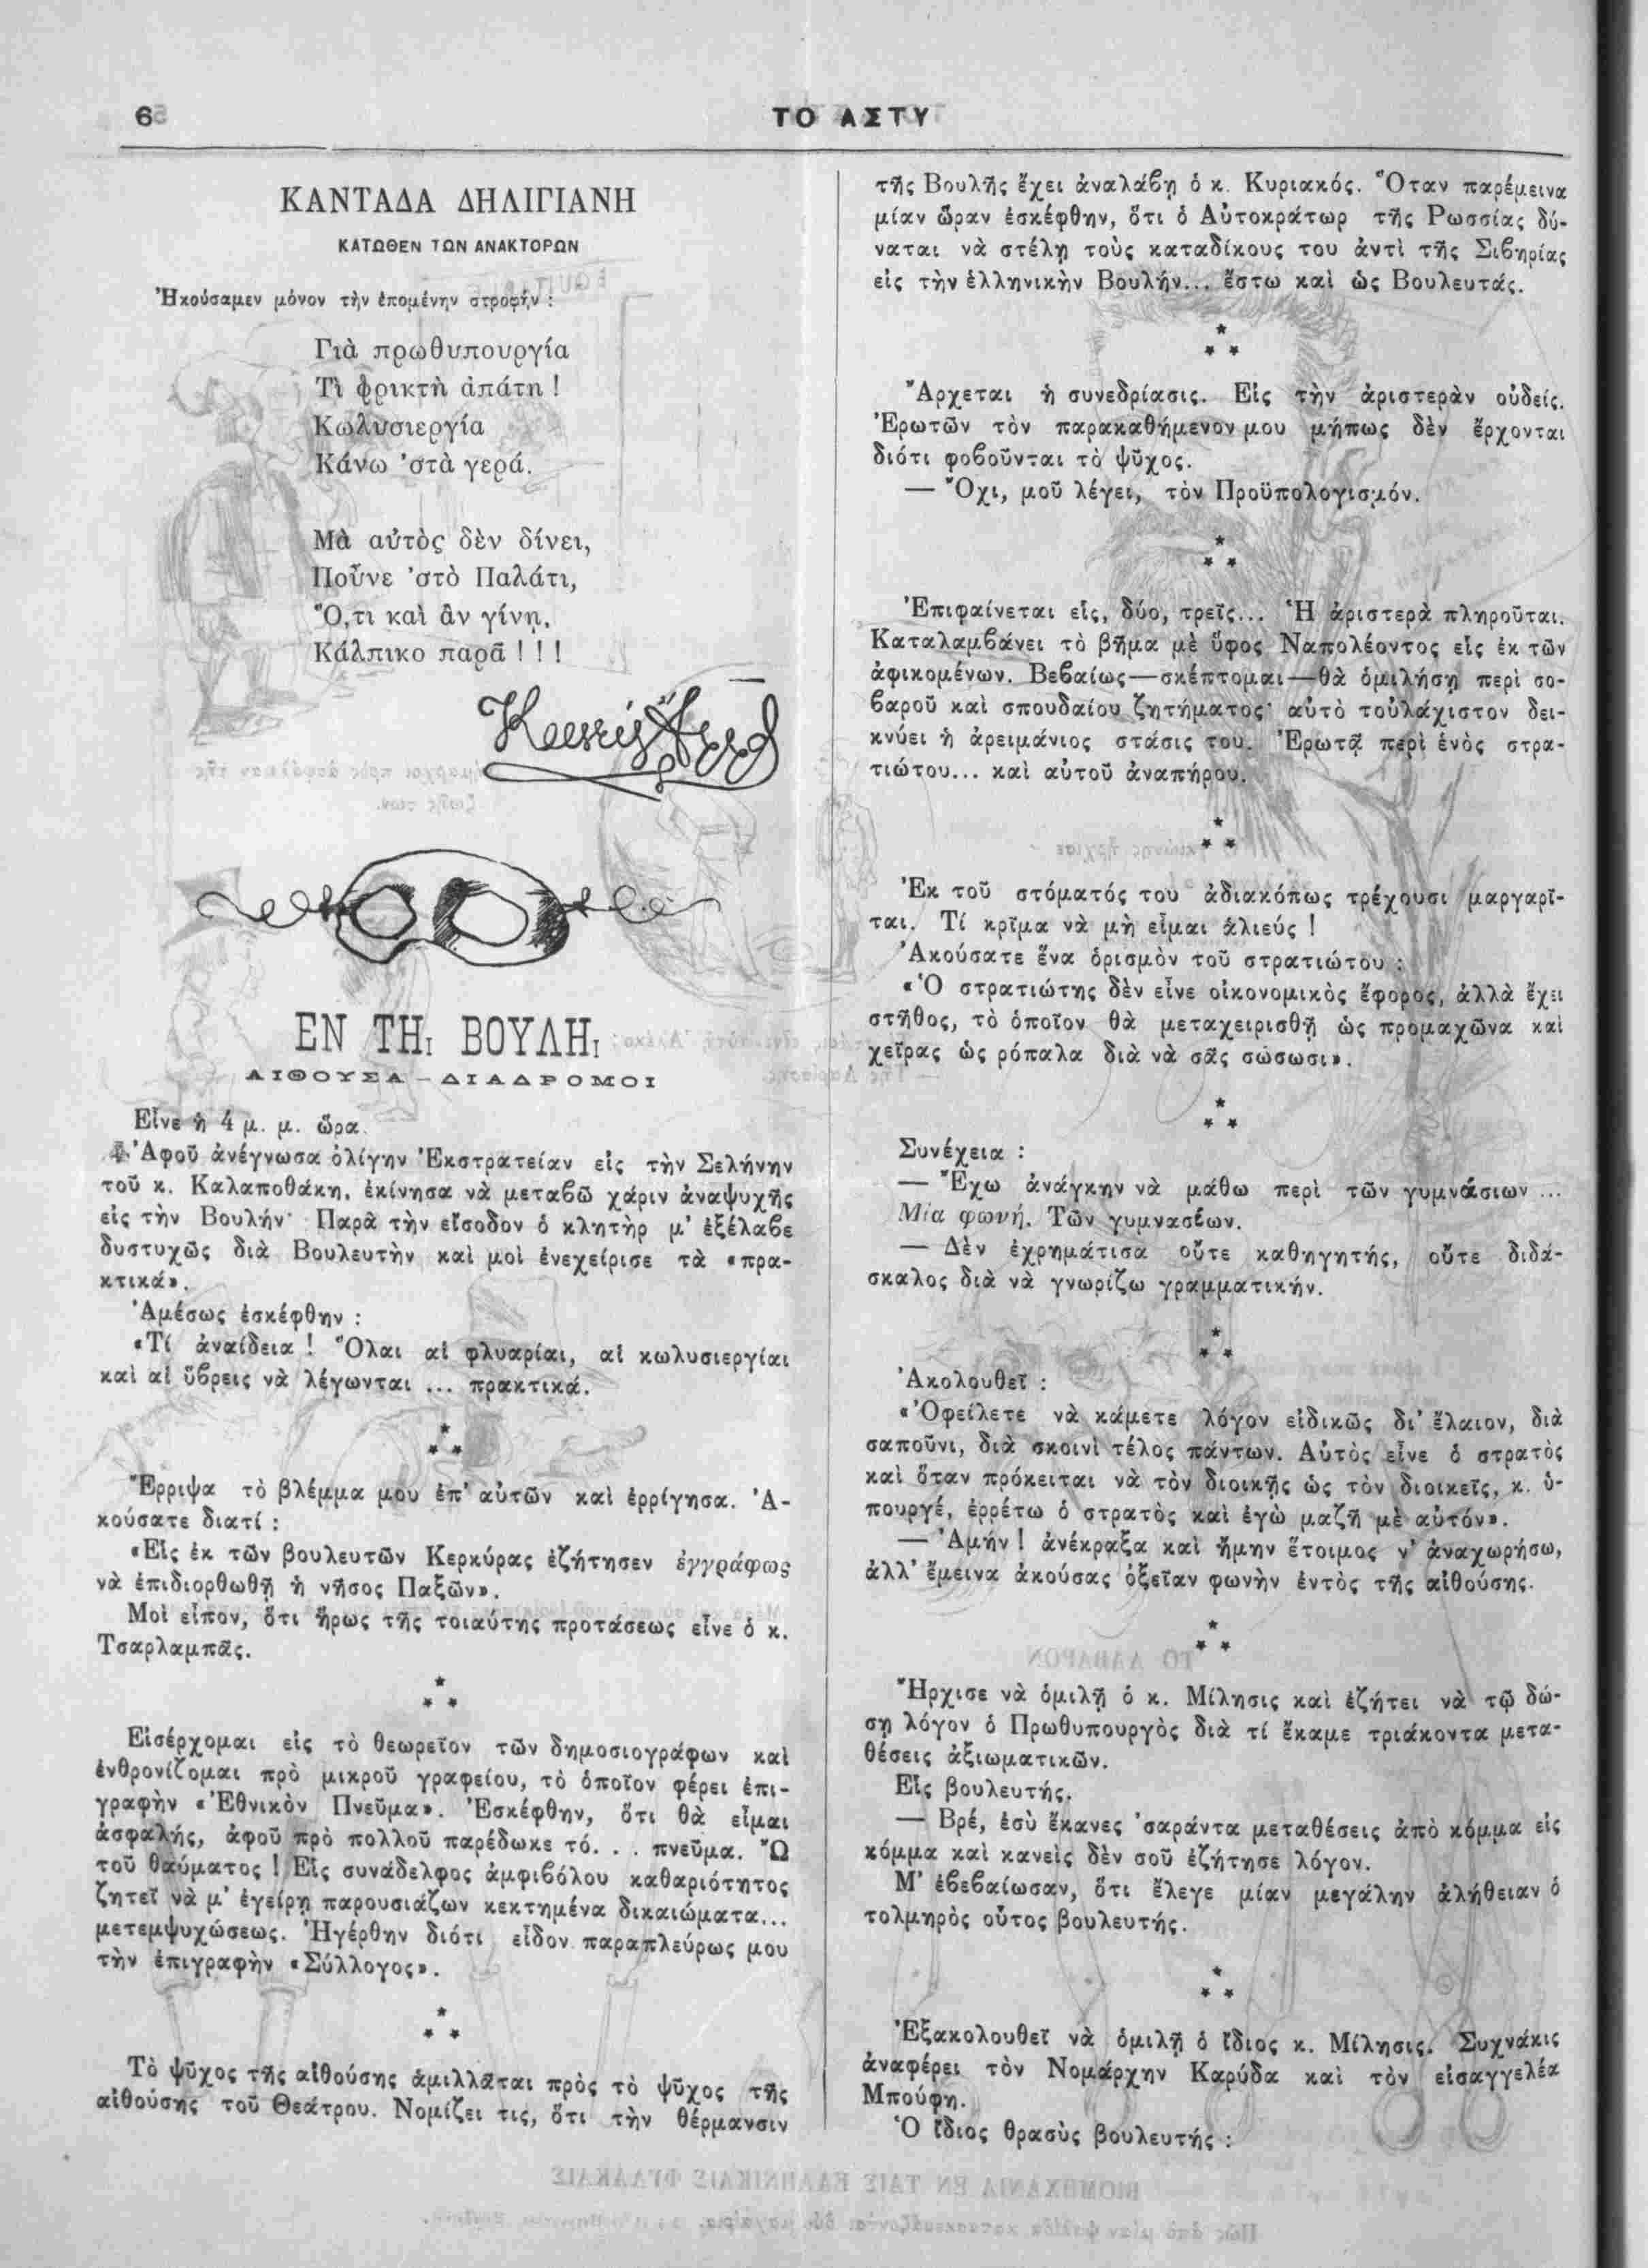 6
ΤΟ ΑΣΤΥ
ΚΑΝΤΑΔΑ ΔΗΛΙΓΙΑΝΗ
ΚΑΤΩΘΕΝ ΤΩΝ ΑΝΑΚΤΟΡΩΝ
Ἠκούσαμεν μόνον τὴν ἑπομένην στροφήν :
Γιὰ πρωθυπουργία
Τὶ φρικτὴ ἀπάτη !
Κωλυσιεργία
Κάνω 'στὰ γερά.
Μὰ αὐτὸς δὲν δίνει,
Ποῦνε 'στὸ Παλάτι,
Ὅ,τι καὶ ἂν γίνῃ,
Κάλπικο παρᾶ ! ! !
ΕΝ ΤΗι ΒΟΥΛΗι
ΑΙΘΟΥΣΑ – ΔΙΑΔΡΟΜΟΙ
Εἶνε ἡ 4 μ. μ. ὥρα.
Ἀφοῦ ἀνέγνωσα ὀλίγην Ἐκστρατείαν εἰς τὴν Σελήνην
τοῦ κ. Καλαποθάκη, ἐκίνησα νὰ μεταβῶ χάριν ἀναψυχῆς
εἰς τὴν Βουλήν· Παρὰ τὴν εἴσοδον ὁ κλητὴρ μ' ἐξέλαβε
δυστυχῶς διὰ Βουλευτὴν καὶ μοὶ ἐνεχείρισε τὰ «πρα-
κτικά».
Ἀμέσως ἐσκέφθην :
«Τί ἀναίδεια ! Ὅλαι αἱ φλυαρίαι, αἱ κωλυσιεργίαι
καὶ αἱ ὕβρεις νὰ λέγωνται ... πρακτικά.
Ἔρριψα τὸ βλέμμα μου ἐπ' αὐτῶν καὶ ἐρρίγησα. Ἀ-
κούσατε διατί :
«Εἷς ἐκ τῶν βουλευτῶν Κερκύρας ἐζήτησεν ἐγγράφως
νὰ ἐπιδιορθωθῇ ἡ νῆσος Παξῶν».
Μοὶ εἶπον, ὅτι ἥρως τῆς τοιαύτης προτάσεως εἶνε ὁ κ.
Τσαρλαμπᾶς.
Εἰσέρχομαι εἰς τὸ θεωρεῖον τῶν δημοσιογράφων καὶ
ἐνθρονίζομαι πρὸ μικροῦ γραφείου, τὸ ὁποῖον φέρει ἐπι-
γραφὴν «Ἐθνικὸν Πνεῦμα». Ἐσκέφθην, ὅτι θὰ εἶμαι
ἀσφαλής, ἀφοῦ πρὸ πολλοῦ παρέδωκε τό. . . πνεῦμα. Ὢ
τοῦ θαύματος ! Εἷς συνάδελφος ἀμφιβόλου καθαριότητος
ζητεῖ νὰ μ' ἐγείρῃ παρουσιάζων κεκτημένα δικαιώματα...
μετεμψυχώσεως. Ἠγέρθην διότι εἶδον παραπλεύρως μου
τὴν ἐπιγραφὴν «Σύλλογος».
Τὸ ψῦχος τῆς αἰθούσης ἁμιλλᾶται πρὸς τὸ ψῦχος τῆς
αἰθούσης τοῦ Θεάτρου. Νομίζει τις, ὅτι τὴν θέρμανσιν
τῆς Βουλῆς ἔχει ἀναλάβῃ ὁ κ. Κυριακός. Ὅταν παρέμεινα
μίαν ὥραν ἐσκέφθην, ὅτι ὁ Αὐτοκράτωρ τῆς Ρωσσίας δύ-
ναται νὰ στέλῃ τοὺς καταδίκους του ἀντὶ τῆς Σιβηρίας
εἰς τὴν ἑλληνικὴν Βουλήν... ἔστω καὶ ὡς Βουλευτάς.
Ἄρχεται ἡ συνεδρίασις. Εἰς τὴν ἀριστερὰν οὐδείς.
Ἐρωτῶν τὸν παρακαθήμενον μου μήπως δὲν ἔρχονται
διότι φοβοῦνται τὸ ψῦχος.
— Ὄχι, μοῦ λέγει, τὸν Προϋπολογισμόν.
Ἐπιφαίνεται εἷς, δύο, τρεῖς... Ἡ ἀριστερὰ πληροῦται.
Καταλαμβάνει τὸ βῆμα μὲ ὕφος Ναπολέοντος εἷς ἐκ τῶν
ἀφικομένων. Βεβαίως—σκέπτομαι—θὰ ὁμιλήσῃ περὶ σο-
βαροῦ καὶ σπουδαίου ζητήματος· αὐτὸ τοὐλάχιστον δει-
κνύει ἡ ἀρειμάνιος στάσις του. Ἐρωτᾷ περὶ ἑνὸς στρα-
τιώτου... καὶ αὐτοῦ ἀναπήρου.
Ἐκ τοῦ στόματός του ἀδιακόπως τρέχουσι μαργαρῖ-
ται. Τί κρῖμα νὰ μὴ εἶμαι ἁλιεύς !
Ἀκούσατε ἕνα ὁρισμὸν τοῦ στρατιώτου :
«Ὁ στρατιώτης δὲν εἶνε οἰκονομικὸς ἔφορος, ἀλλὰ ἔχει
στῆθος, τὸ ὁποῖον θὰ μεταχειρισθῇ ὡς προμαχῶνα καὶ
χεῖρας ὡς ρόπαλα διὰ νὰ σᾶς σώσωσι».
Συνέχεια :
— Ἔχω ἀνάγκην νὰ μάθω περὶ τῶν γυμνάσιων ...
Μία φωνή. Τῶν γυμνασίων.
— Δὲν ἐχρημάτισα οὔτε καθηγητής, οὔτε διδά-
σκαλος διὰ νὰ γνωρίζω γραμματικήν.
Ἀκολουθεῖ :
«Ὀφείλετε νὰ κάμετε λόγον εἰδικῶς δι' ἔλαιον, διὰ
σαποῦνι, διὰ σκοινὶ τέλος πάντων. Αὐτὸς εἶνε ὁ στρατὸς
καὶ ὅταν πρόκειται νὰ τὸν διοικῇς ὡς τὸν διοικεῖς, κ. ὑ-
πουργέ, ἐρρέτω ὁ στρατὸς καὶ ἐγὼ μαζῆ μὲ αὐτόν».
— Ἀμήν ! ἀνέκραξα καὶ ἤμην ἕτοιμος ν' ἀναχωρήσω,
ἀλλ' ἔμεινα ἀκούσας ὀξεῖαν φωνὴν ἐντὸς τῆς αἰθούσης.
Ἤρχισε νὰ ὁμιλῇ ὁ κ. Μίλησις καὶ ἐζήτει νὰ τῷ δώ-
σῃ λόγον ὁ Πρωθυπουργὸς διὰ τί ἔκαμε τριάκοντα μετα-
θέσεις ἀξιωματικῶν.
Εἷς βουλευτής.
— Βρέ, ἐσὺ ἔκανες 'σαράντα μεταθέσεις ἀπὸ κόμμα εἰς
κόμμα καὶ κανεὶς δὲν σοῦ ἐζήτησε λόγον.
Μ' ἐβεβαίωσαν, ὅτι ἔλεγε μίαν μεγάλην ἀλήθειαν ὁ
τολμηρὸς οὗτος βουλευτής.
Ἐξακολουθεῖ νὰ ὁμιλῇ ὁ ἴδιος κ. Μίλησις. Συχνάκις
ἀναφέρει τὸν Νομάρχην Καρύδα καὶ τὸν εἰσαγγελέα
Μπούφη.
Ὁ ἴδιος θρασὺς βουλευτής :